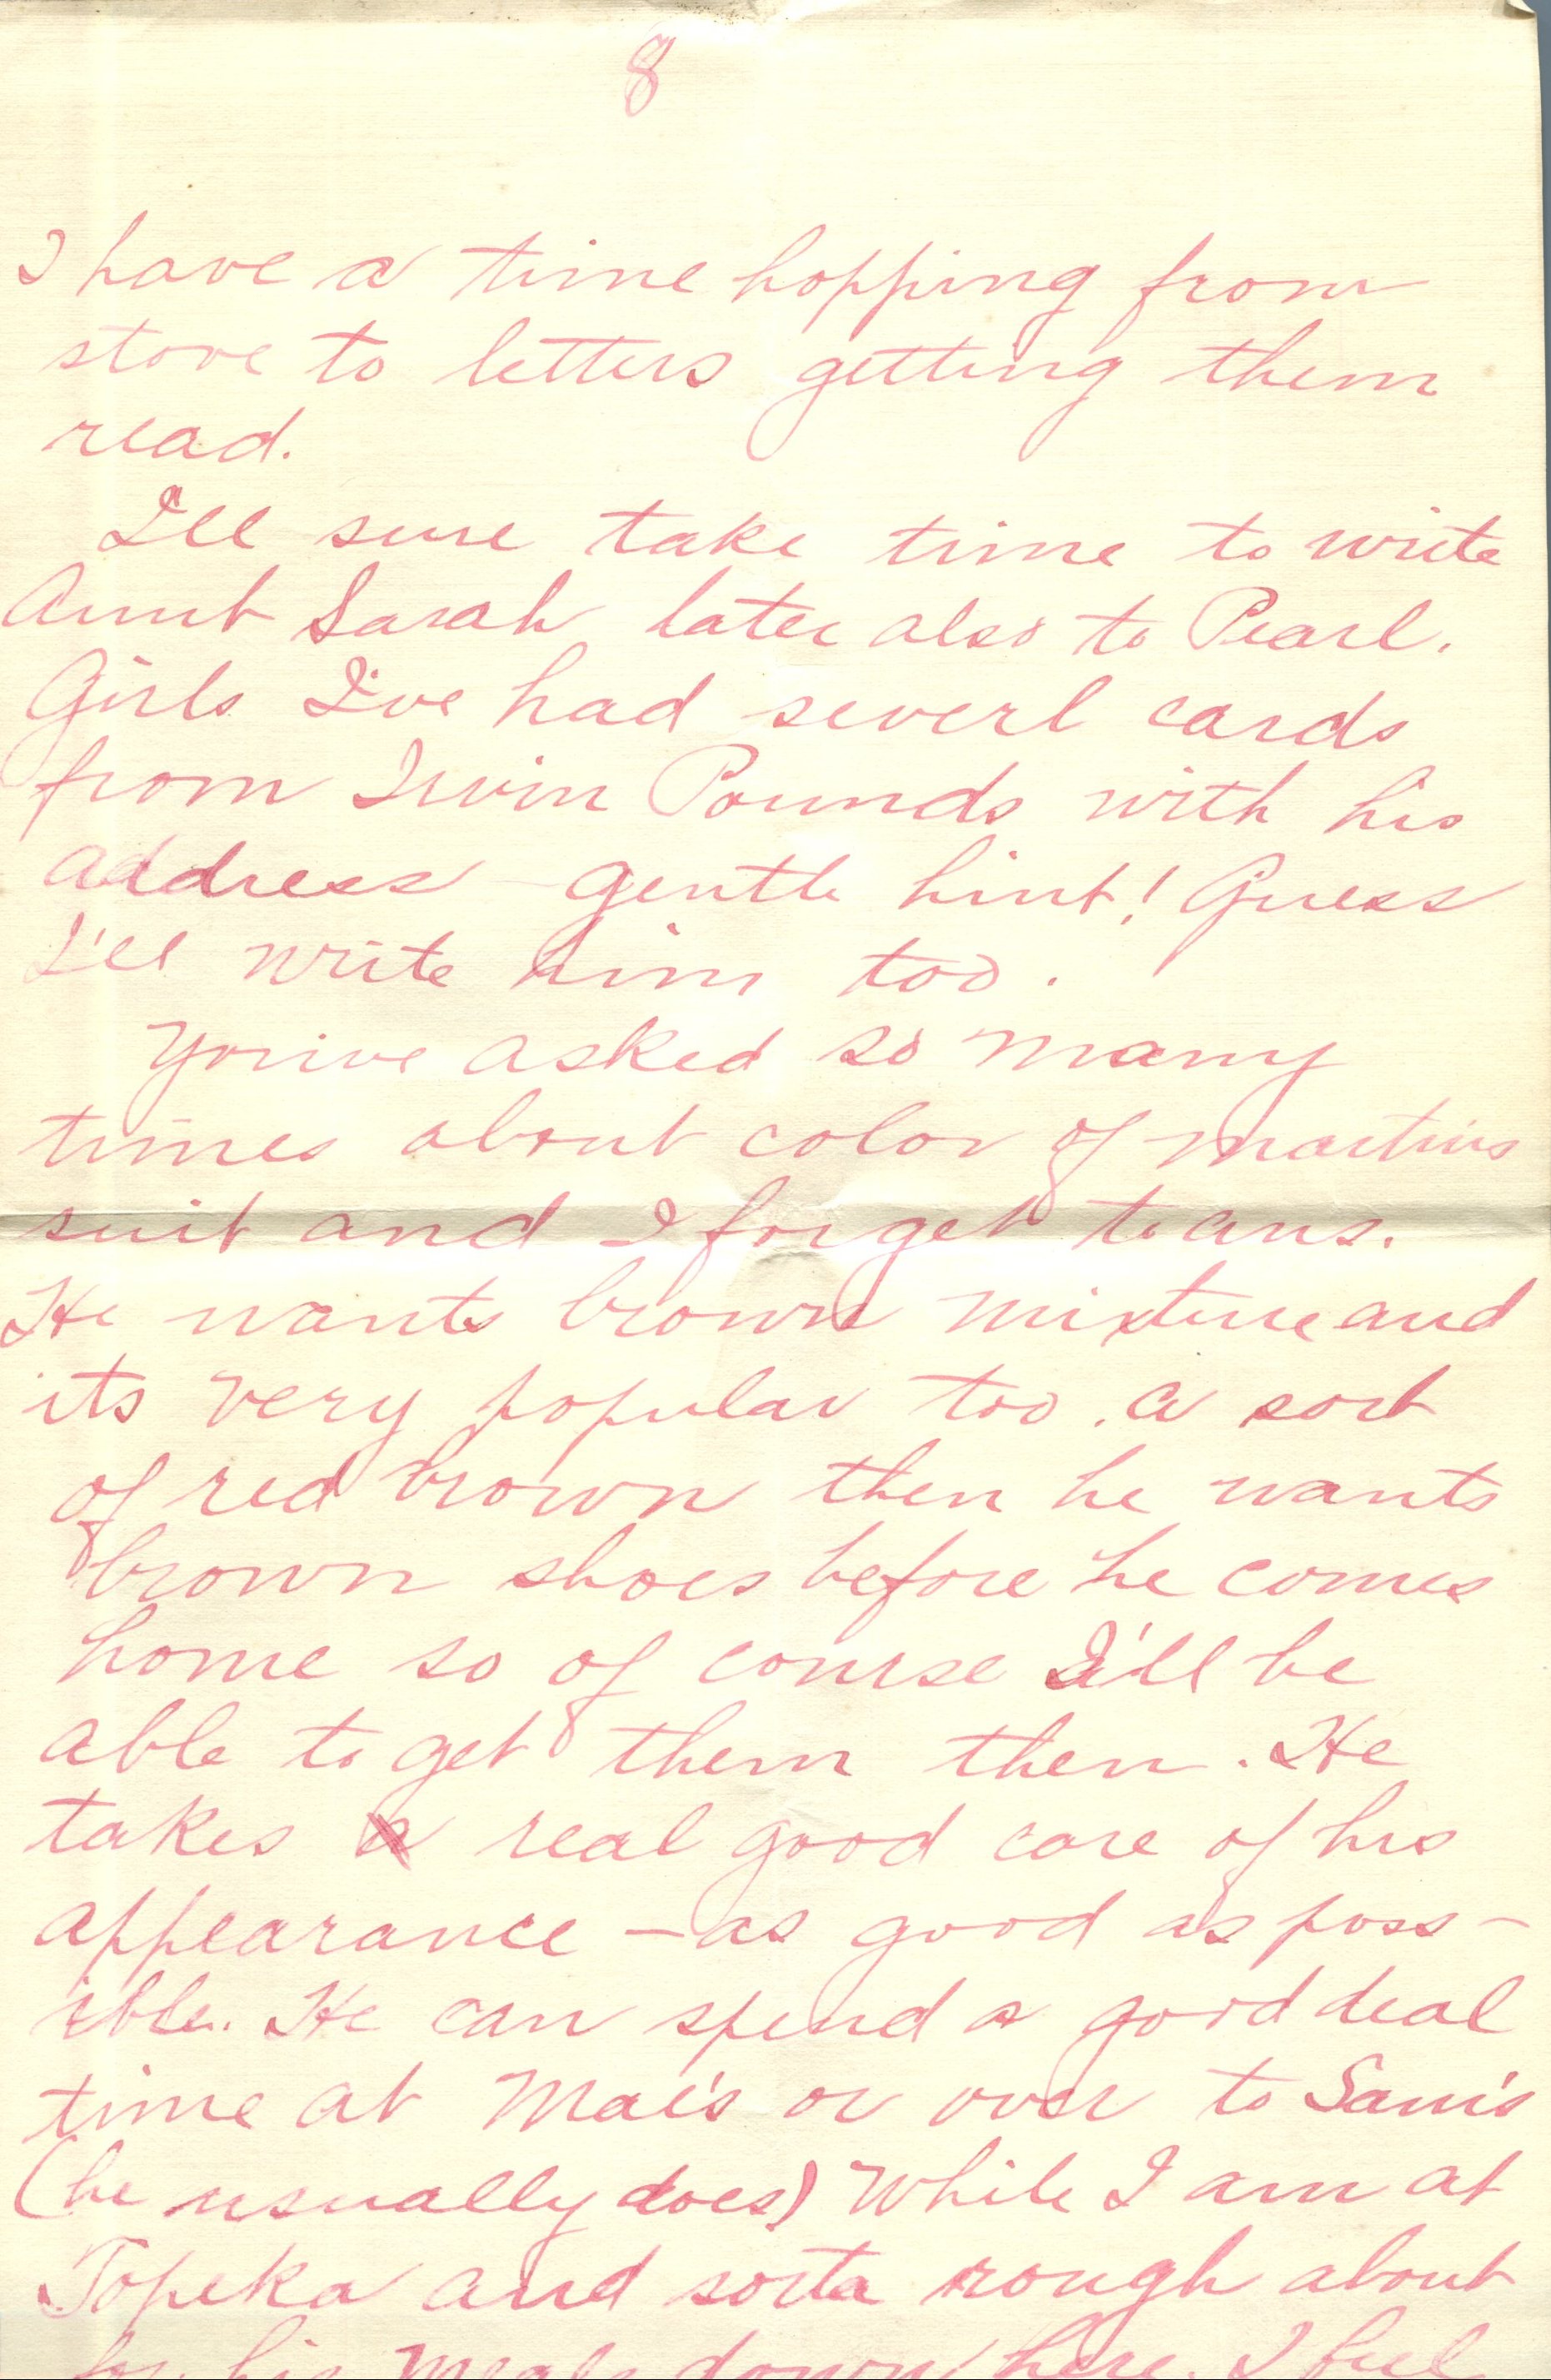 8
I have a time hopping from
stove to letters getting them
read.
I'll sure take time to write
Aunt Sarah later also to Pearl.
Girls I've had severl cards
from Irvin Pounds with his
address - gentle hint! Guess
I'll write him too.
You've asked so many
times about color of Martins
suit and I forget to ans.
He wants brown mixture and
its very popular too. a sort
of red brown then he wants
brown shoes before he comes
home so of course I'll be
able to get them then. He
takes a real good care of his
appearance - as good as poss-
ible. He can spend a good deal
time at Mae's or over to Sam's
(he usually does) While I am at
Topeka and sorta rough about
for his meals down here. I feel